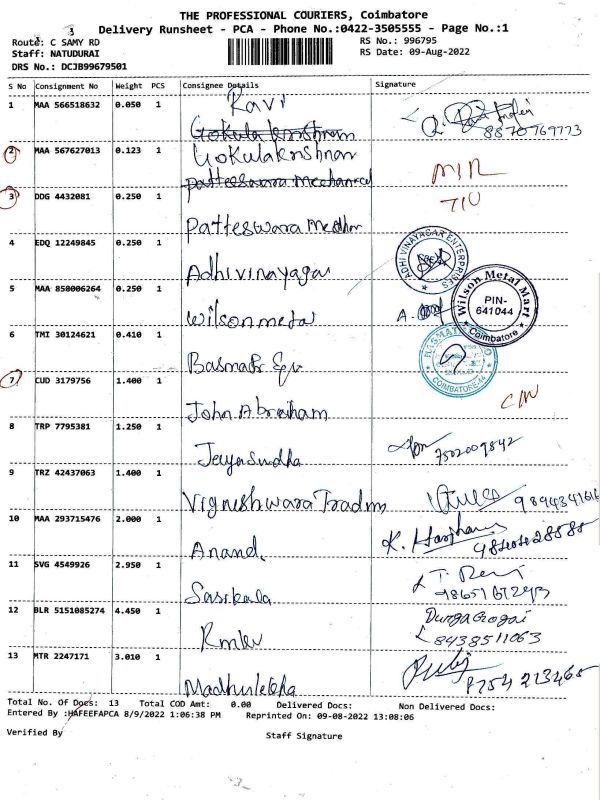 THE PROFESSIONAL COURIERS, Coimbatore
Delivery Runsheet - PCA - Phone No.:0422-3505555 - Page No.:1
3
Route: C SAMY RD
RS No.: 996795
Staff: NATUDURAI
RS Date: 09-Aug-2022
DRS No.: DCJB99679501
S No Consignment No Weight PCS Consignee Details Signature
1 MAA 566518632 0.050 1 Ravi
8870769773
Gokula krishnan
2 MAA 567627013 0.123 1 Gokulakrishnan MIR
Patteeswara Mechanical
3 DDG 4432081 0.250 1 TIU
Patteswara
4 EDQ 12249845 0.250 1 ADHI VINAYAGAR ENTERPRISES
Adhivinayagar
5 MAA 850006264 0.250 1 Wilson Metal Mart PIN-641044 Coimbatore
Wilsonmetal
6 TMI 30124621 0.410 1 COIMBATORE-44
7 CUD 3179756 1.400 1 CIN
John Abraham
8 TRP 7795381 1.250 1 7502009842
Jeyasudha
9 TRZ 42437063 1.400 1
Vigneshwara Tradin
10 MAA 293715476 2.000 1
Anand.
11 SVG 4549926 2.950 1
Sasikala
12 BLR 5151085274 4.450 1 8438511063
13 MTR 2247171 3.010 1 8754213465
Total No. Of Docs: 13 Total COD Amt: 0.00 Delivered Docs: Non Delivered Docs:
Entered By :HAFEEFAPCA 8/9/2022 1:06:38 PM Reprinted On: 09-08-2022 13:08:06
Verified By
Staff Signature